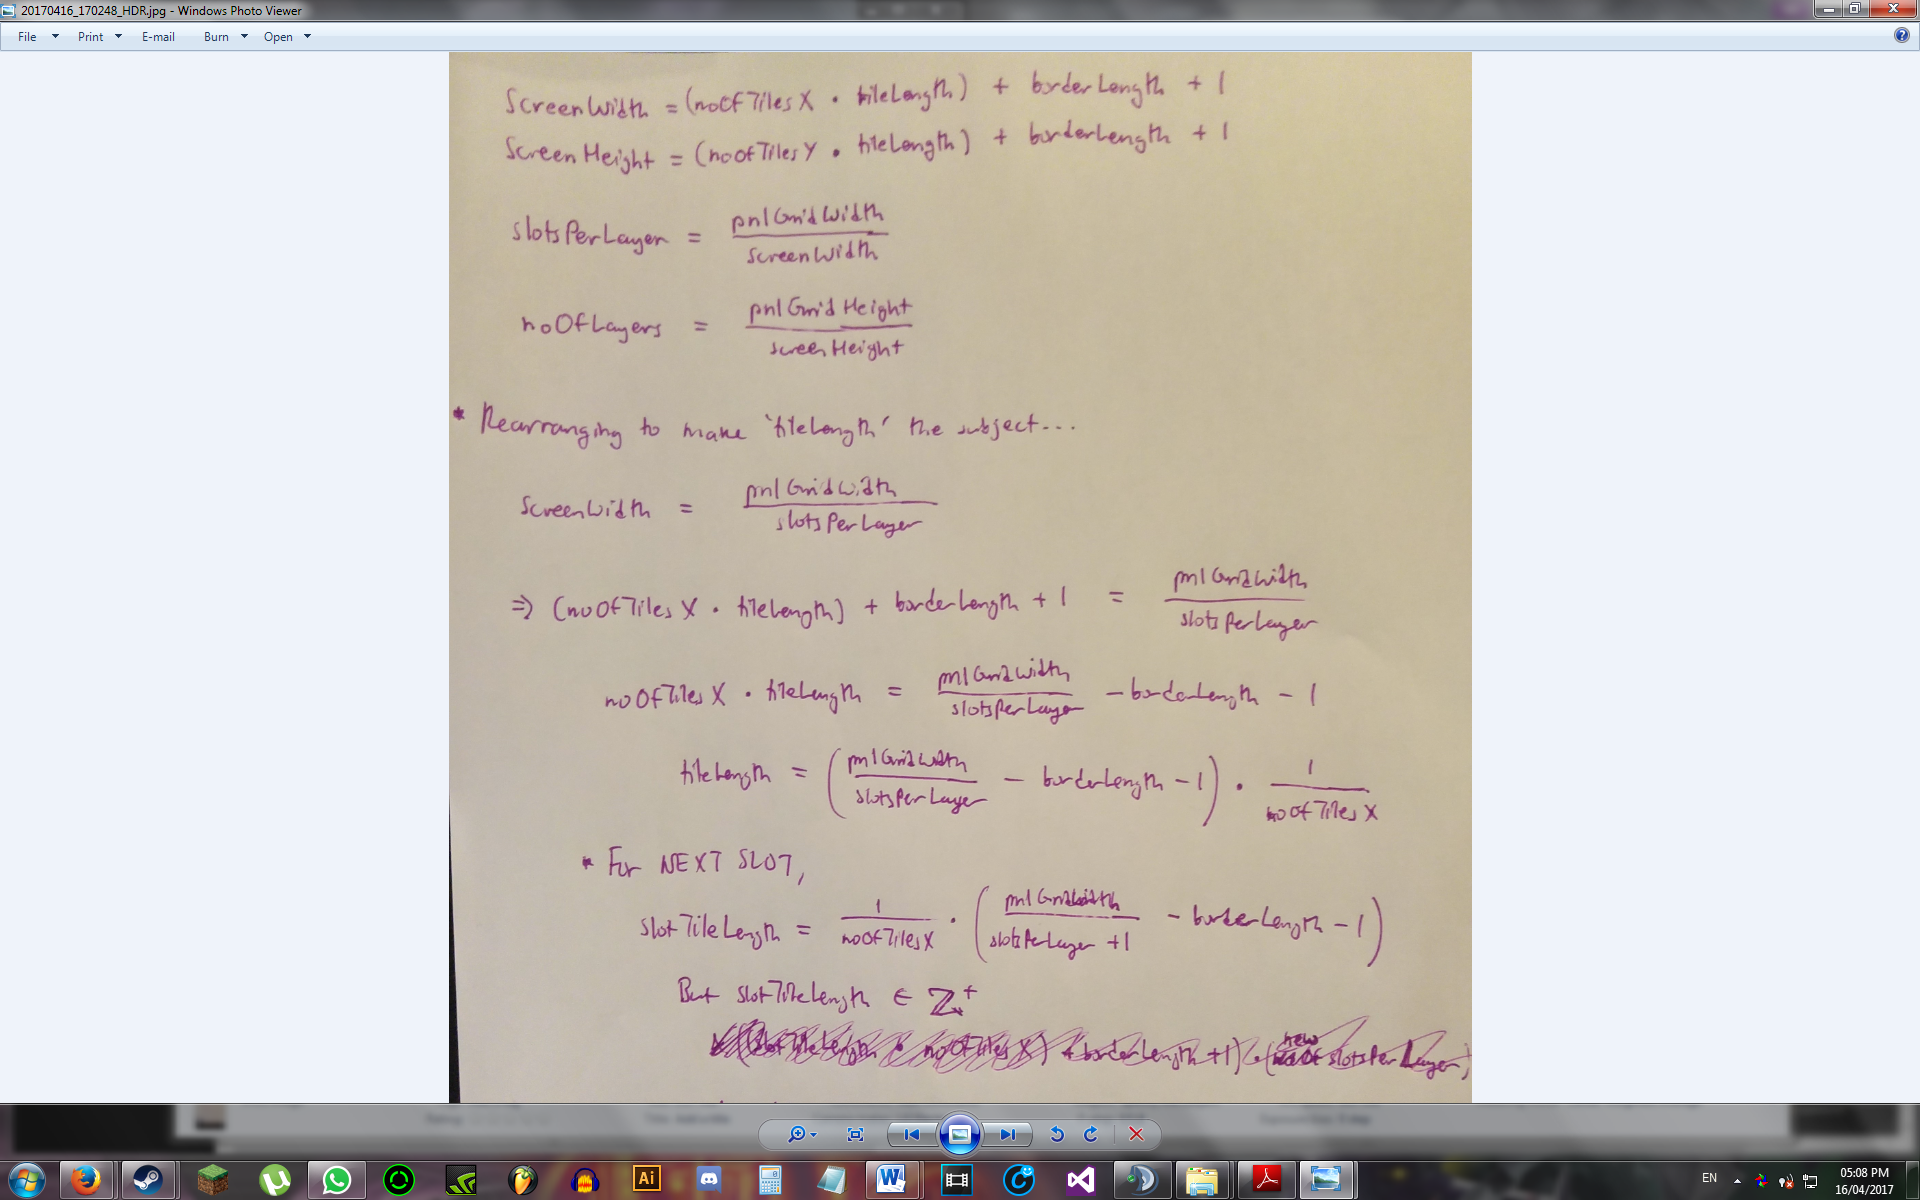 20170416_170248_HDR.jpg - Windows Photo Viewer
File Print E-mail Burn Open
ScreenWidth = (noOfTilesX · tileLength) + borderLength + 1
ScreenHeight = (noOfTilesY · tileLength) + borderLength + 1
slotsPerLayer = pnlGridWidth / screenWidth
noOfLayers = pnlGridHeight / screenHeight
* Rearranging to make 'tileLength' the subject...
ScreenWidth = pnlGridWidth / slotsPerLayer
⇒ (noOfTilesX · tileLength) + borderLength + 1 = pnlGridWidth / slotsPerLayer
noOfTilesX · tileLength = pnlGridWidth / slotsPerLayer - borderLength - 1
tileLength = (pnlGridWidth / slotsPerLayer - borderLength - 1) · 1 / noOfTilesX
* For NEXT SLOT,
slotTileLength = 1 / noOfTilesX · (pnlGridWidth / slotsPerLayer + 1 - borderLength - 1)
But slotTileLength ∈ ℤ+
(slotTileLength · noOfTilesX) + borderLength + 1) · (new slotsPerLayer)
Ai
EN
05:08 PM
16/04/2017